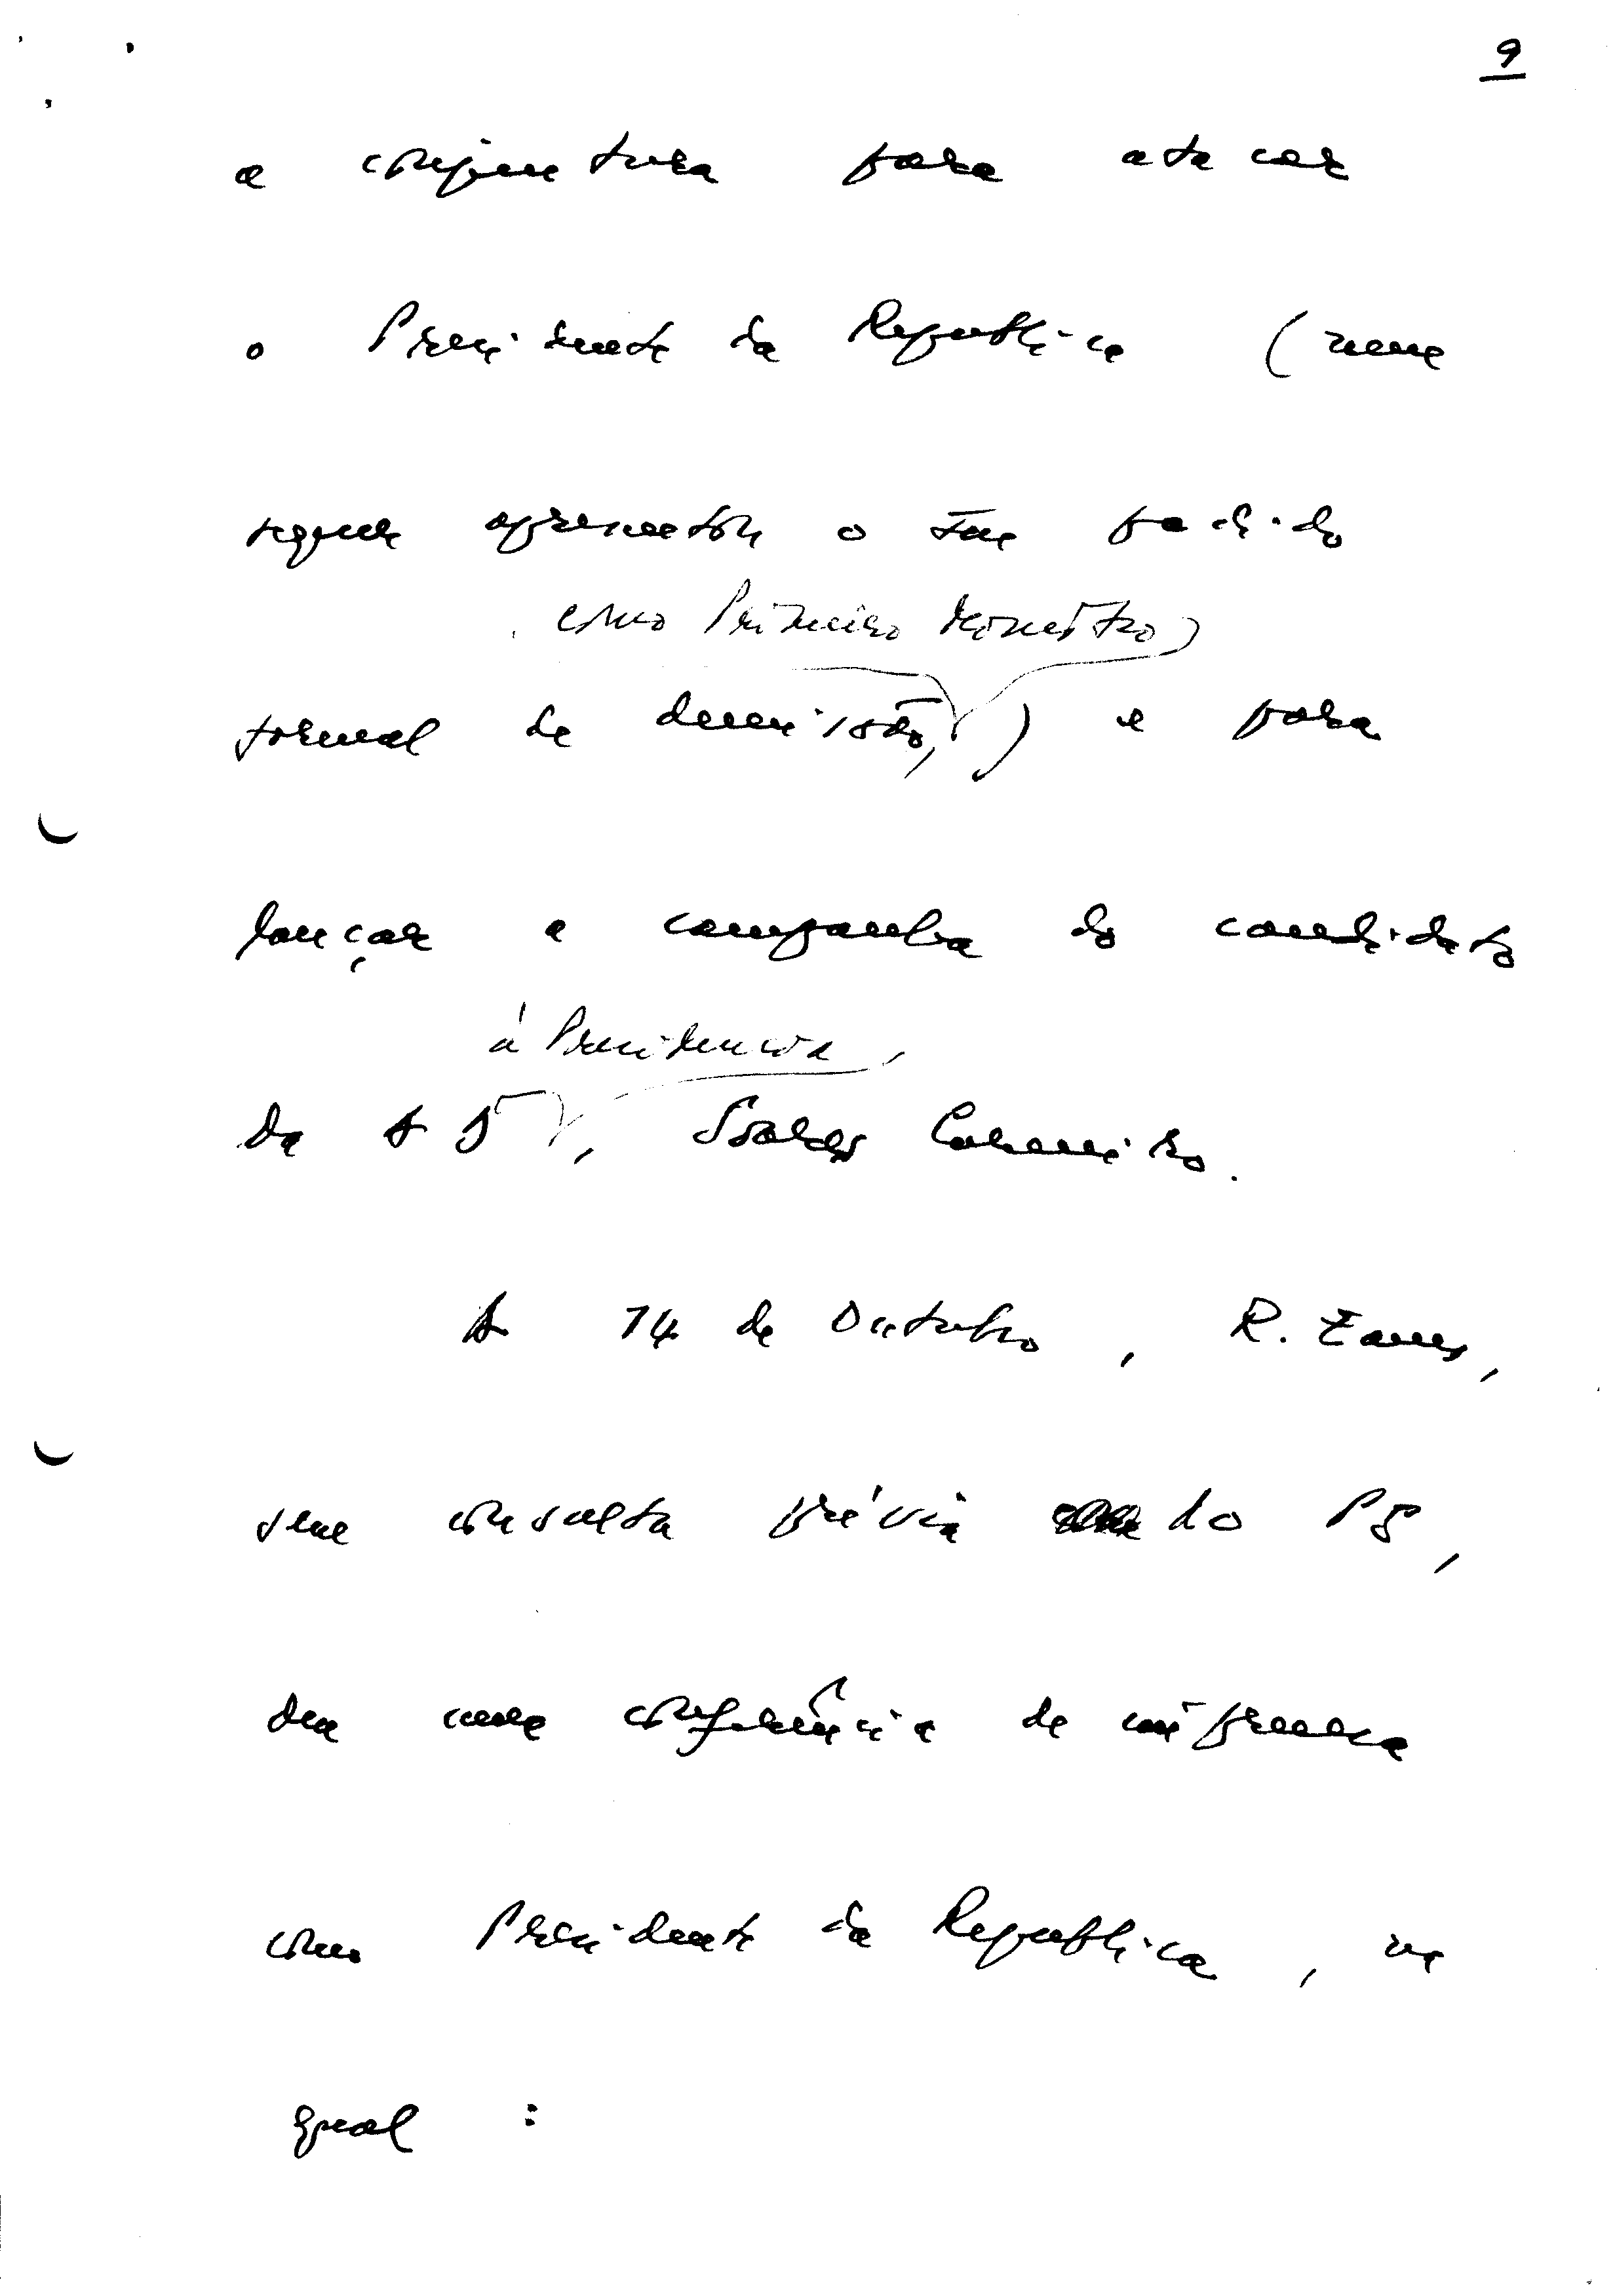 9
a conjuntura para atacar
o Presidente da Republica (nem
sequer apresentou o seu pedido
como Primeiro Ministro)
formal de demissão, ) e para
lançar a campanha do candidato
à Presidencia,
da AD, Soares Carneiro.
A 14 de Outubro, R. Eanes,
sem consulta prévia do PS,
deu uma conferência de imprensa
como Presidente da Republica, na
qual :